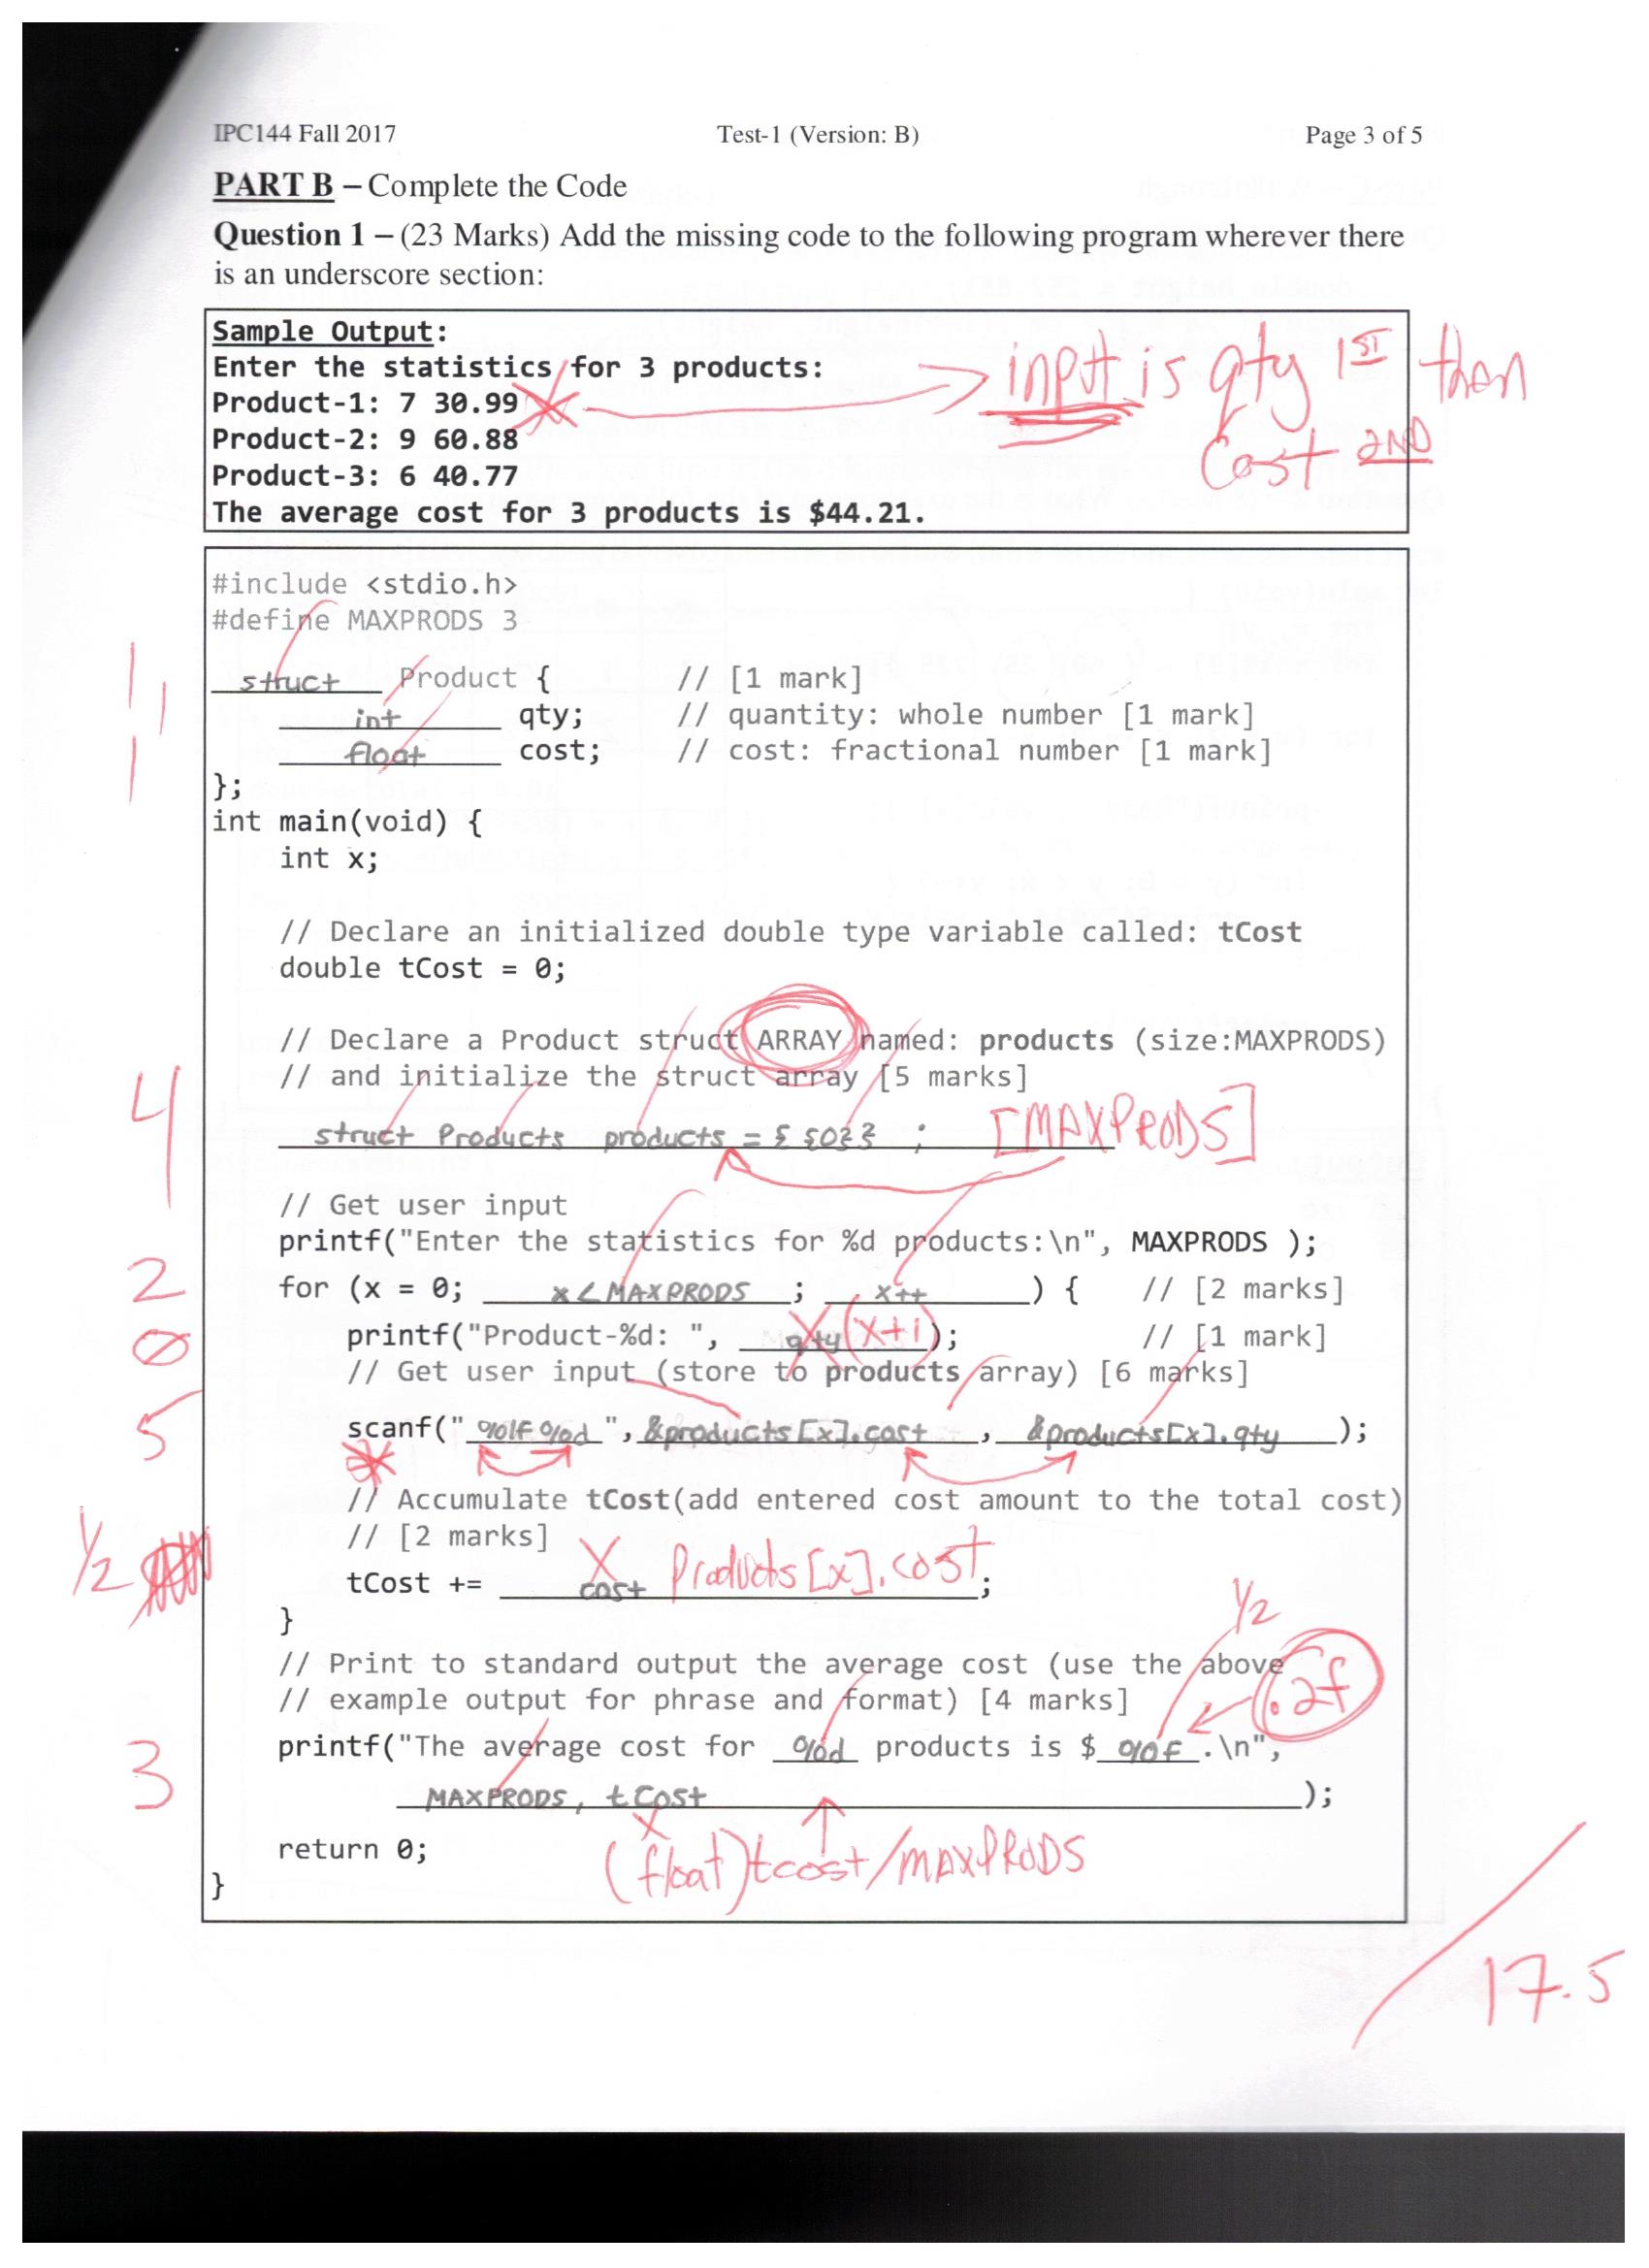 IPC144 Fall 2017 Test-1 (Version: B) Page 3 of 5
PART B – Complete the Code
Question 1 – (23 Marks) Add the missing code to the following program wherever there
is an underscore section:
Sample Output:
Enter the statistics for 3 products:
Product-1: 7 30.99
Product-2: 9 60.88
Product-3: 6 40.77
The average cost for 3 products is $44.21.
input is qty 1ST then
Cost 2ND
#include <stdio.h>
#define MAXPRODS 3
1 struct Product { // [1 mark]
1 int qty; // quantity: whole number [1 mark]
1 float cost; // cost: fractional number [1 mark]
};
int main(void) {
int x;
// Declare an initialized double type variable called: tCost
double tCost = 0;
// Declare a Product struct ARRAY named: products (size:MAXPRODS)
// and initialize the struct array [5 marks]
4 struct Products products = { {0} } ; [MAXPRODS]
// Get user input
printf("Enter the statistics for %d products:\n", MAXPRODS );
2 for (x = 0; x < MAXPRODS ; x++ ) { // [2 marks]
0 printf("Product-%d: ", qty (x+1) ); // [1 mark]
// Get user input (store to products array) [6 marks]
5 scanf(" %lf %d ", &products[x].cost , &products[x].qty );
// Accumulate tCost(add entered cost amount to the total cost)
// [2 marks]
1/2 tCost += cost Products[x].cost ;
}
1/2
// Print to standard output the average cost (use the above
// example output for phrase and format) [4 marks]
.2f
printf("The average cost for %d products is $ %f .\n",
3 MAXPRODS, tCost );
return 0;
(float)tcost/MAXPRODS
}
17.5